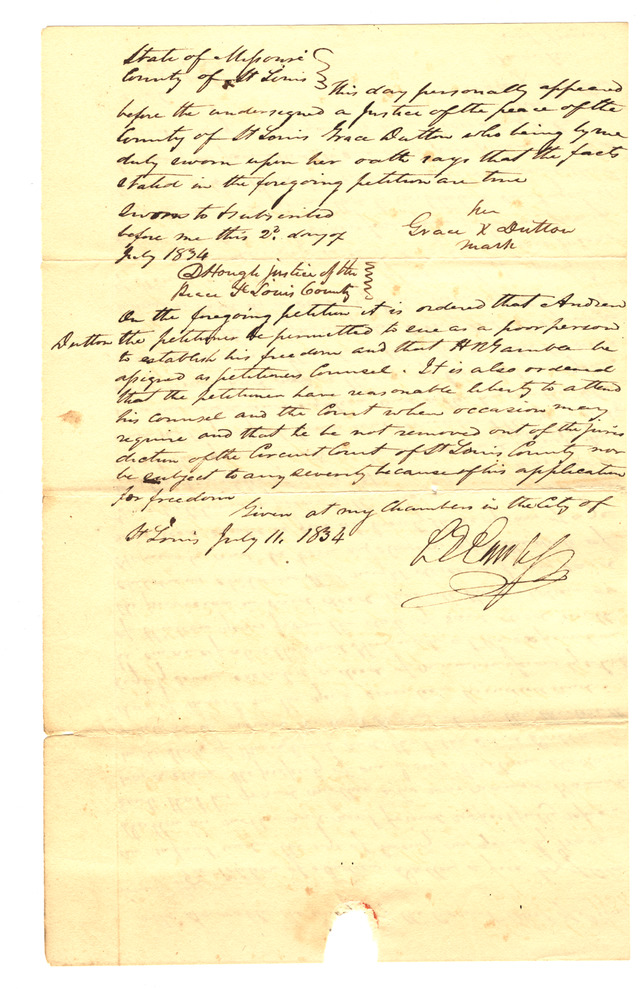 State of Missouri
County of St Louis } This day personally appeared
before the undersigned a Justice of the peace of the
County of St Louis Grace Dutton who being by me
duly sworn upon her oath says that the facts
stated in the foregoing petition are true
Sworn to & subscribed
before me this 2d. day of
July 1834
her
Grace X Dutton
mark
D Hough justice of the
Peace St Louis County
On the foregoing petition it is ordered that Andrew
Dutton the petitioner be permitted to sue as a poor person
to establish his freedom and that H R Gamble be
assigned as petitioners Counsel. It is also ordered
that the petitioner have reasonable liberty to attend
his counsel and the Court when occasion may
require and that he be not removed out of the juris
diction of the Circuit Court of St Louis County nor
be subject to any severity because of his application
for freedom
Given at my Chambers in the City of
St Louis July 11. 1834